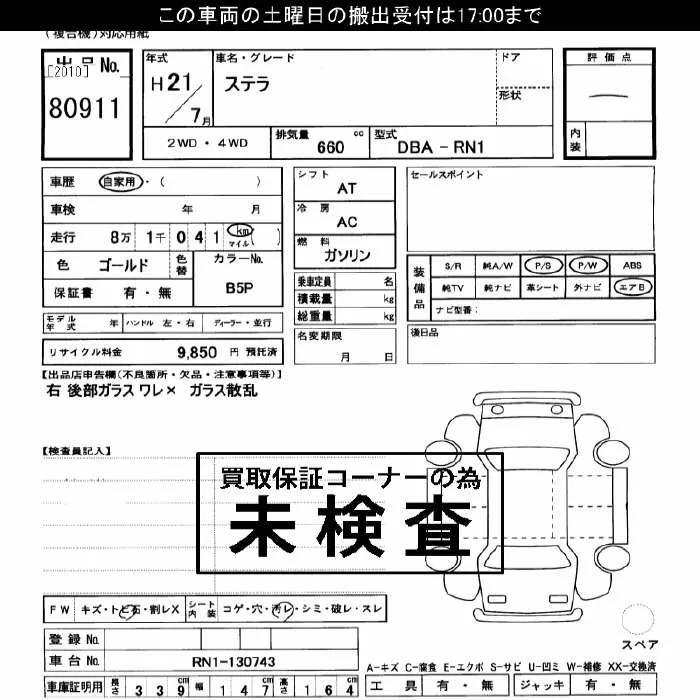 この車両の土曜日の搬出受付は17:00まで
(複合機)対応用紙
出品 No.
[2010]
80911
年式
H 21 / 7 月
車名・グレード
ステラ
ドア
形状
評価点
内装
2WD・4WD
排気量 cc
660
型式
DBA - RN1
車歴 自家用・( )
車検 年 月
走行 8万 1千 0 4 1 km マイル ( )
色 ゴールド 色替
カラーNo.
B5P
保証書 有・無
シフト
AT
冷房
AC
燃料
ガソリン
乗車定員 名
積載量 kg
総重量 kg
セールスポイント
装備品
S/R 純A/W P/S P/W ABS
純TV 純ナビ 革シート 外ナビ エアB
ナビ型番:
モデル年式 年 ハンドル 左・右 ディーラー・並行
名変期限
月 日
後日品
リサイクル料金 9,850 円 預託済
【出品店申告欄(不良箇所・欠品・注意事項等)】
右 後部ガラス ワレ× ガラス散乱
【検査員記入】
買取保証コーナーの為
未検査
FW キズ・トビ石・割レX シート内装 コゲ・穴・汚レ・シミ・破レ・スレ
登録 No.
車台 No. RN1-130743
車庫証明用 長さ 3 3 9 cm 幅 1 4 7 cm 高さ 1 6 4 cm
スペア
A-キズ C-腐食 E-エクボ S-サビ U-凹ミ W-補修 XX-交換済
工具 有・無 ジャッキ 有・無